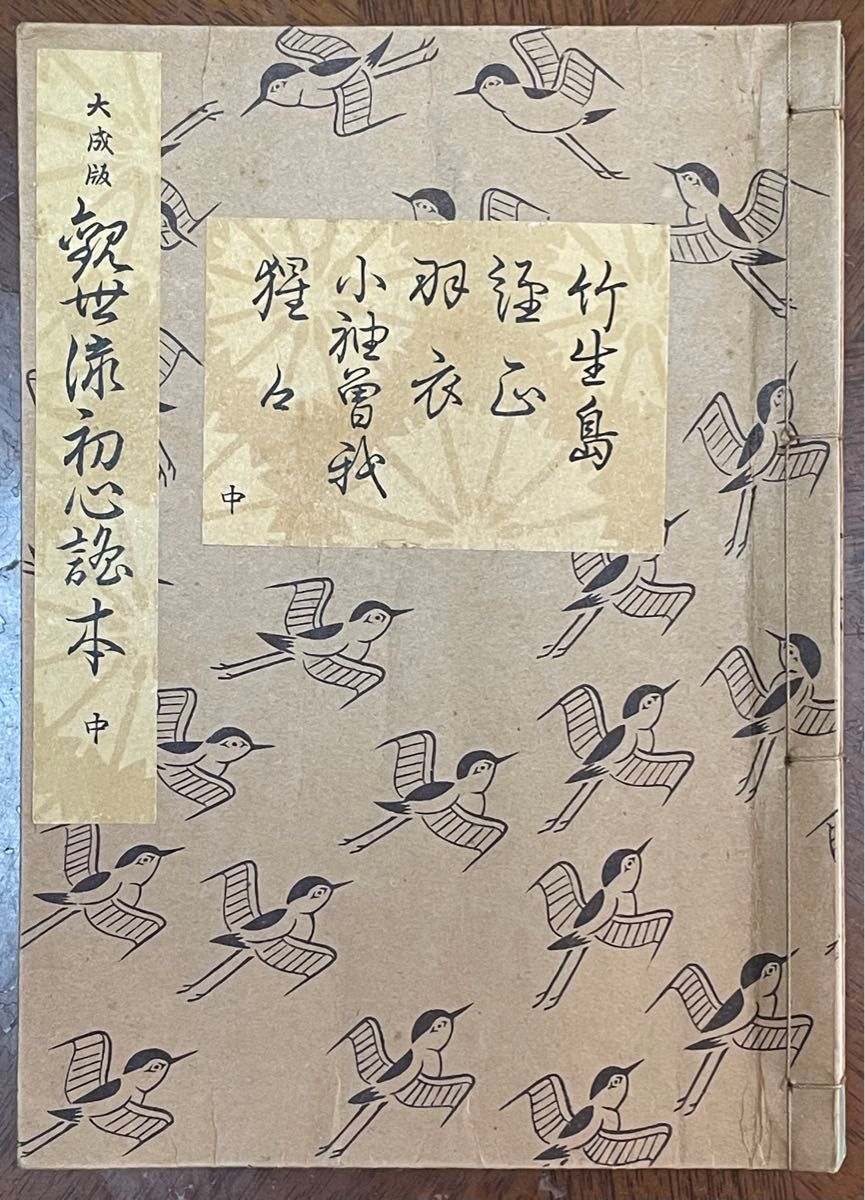 竹生島
經正
羽衣
小袖曽我
猩々
中
大成版
觀世流初心謡本
中